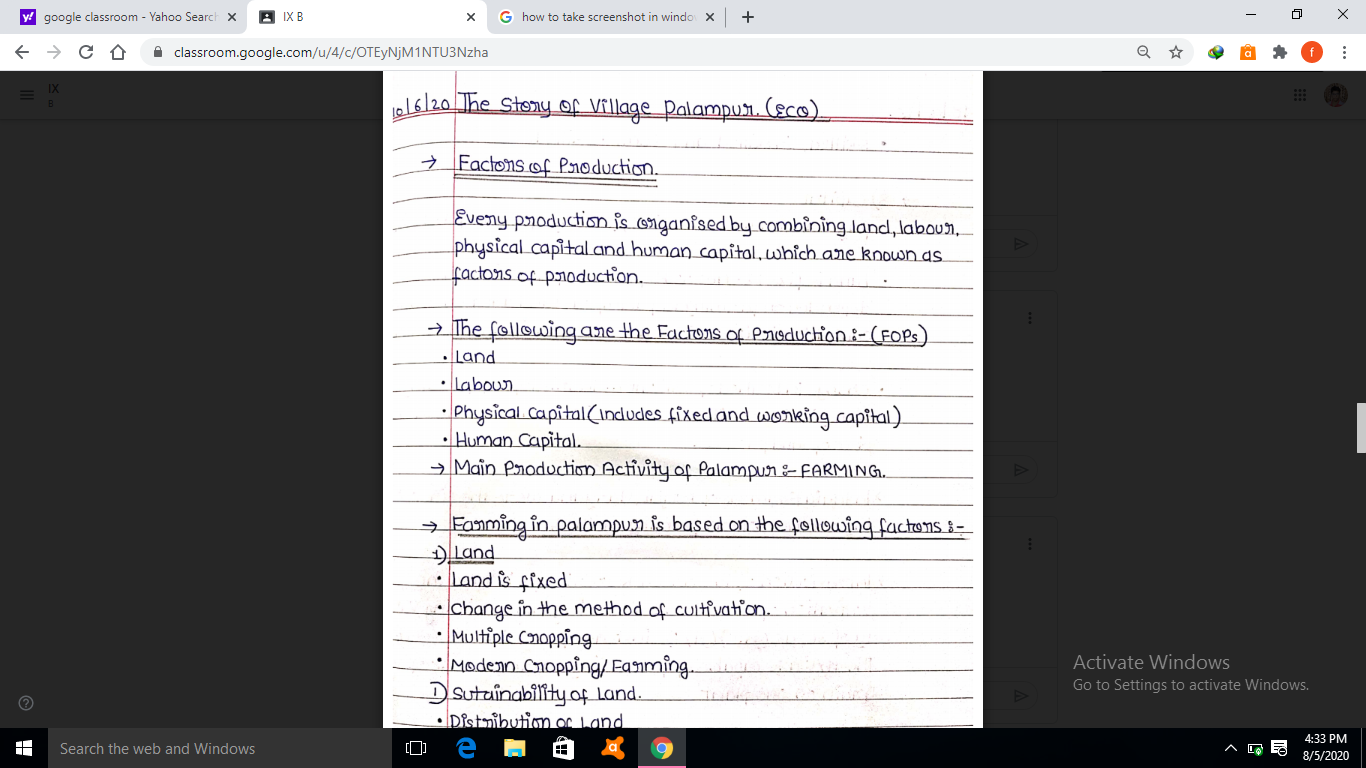 google classroom - Yahoo Search
IX B
how to take screenshot in windo
classroom.google.com/u/4/c/OTEyNjM1NTU3Nzha
f
IX
B
10/6/20 The Story of Village Palampur. (ECO)
→ Factors of Production.
Every production is organised by combining land, labour,
physical capital and human capital, which are known as
factors of production.
→ The following are the Factors of Production :- (FOPs)
• Land
• Labour
• Physical Capital (includes fixed and working capital)
• Human Capital.
→ Main Production Activity of Palampur :- FARMING.
→ Farming in palampur is based on the following factors :-
1) Land
• Land is fixed
• Change in the method of cultivation.
• Multiple Cropping
• Modern Cropping/Farming.
1) Sutainability of Land.
• Distribution of Land
Activate Windows
Go to Settings to activate Windows.
Search the web and Windows
4:33 PM
8/5/2020